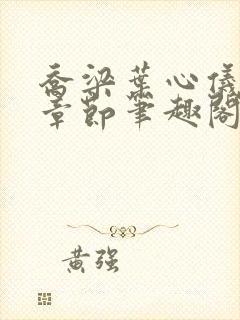 乔梁葉心儀
章節筆趣閣
黃强